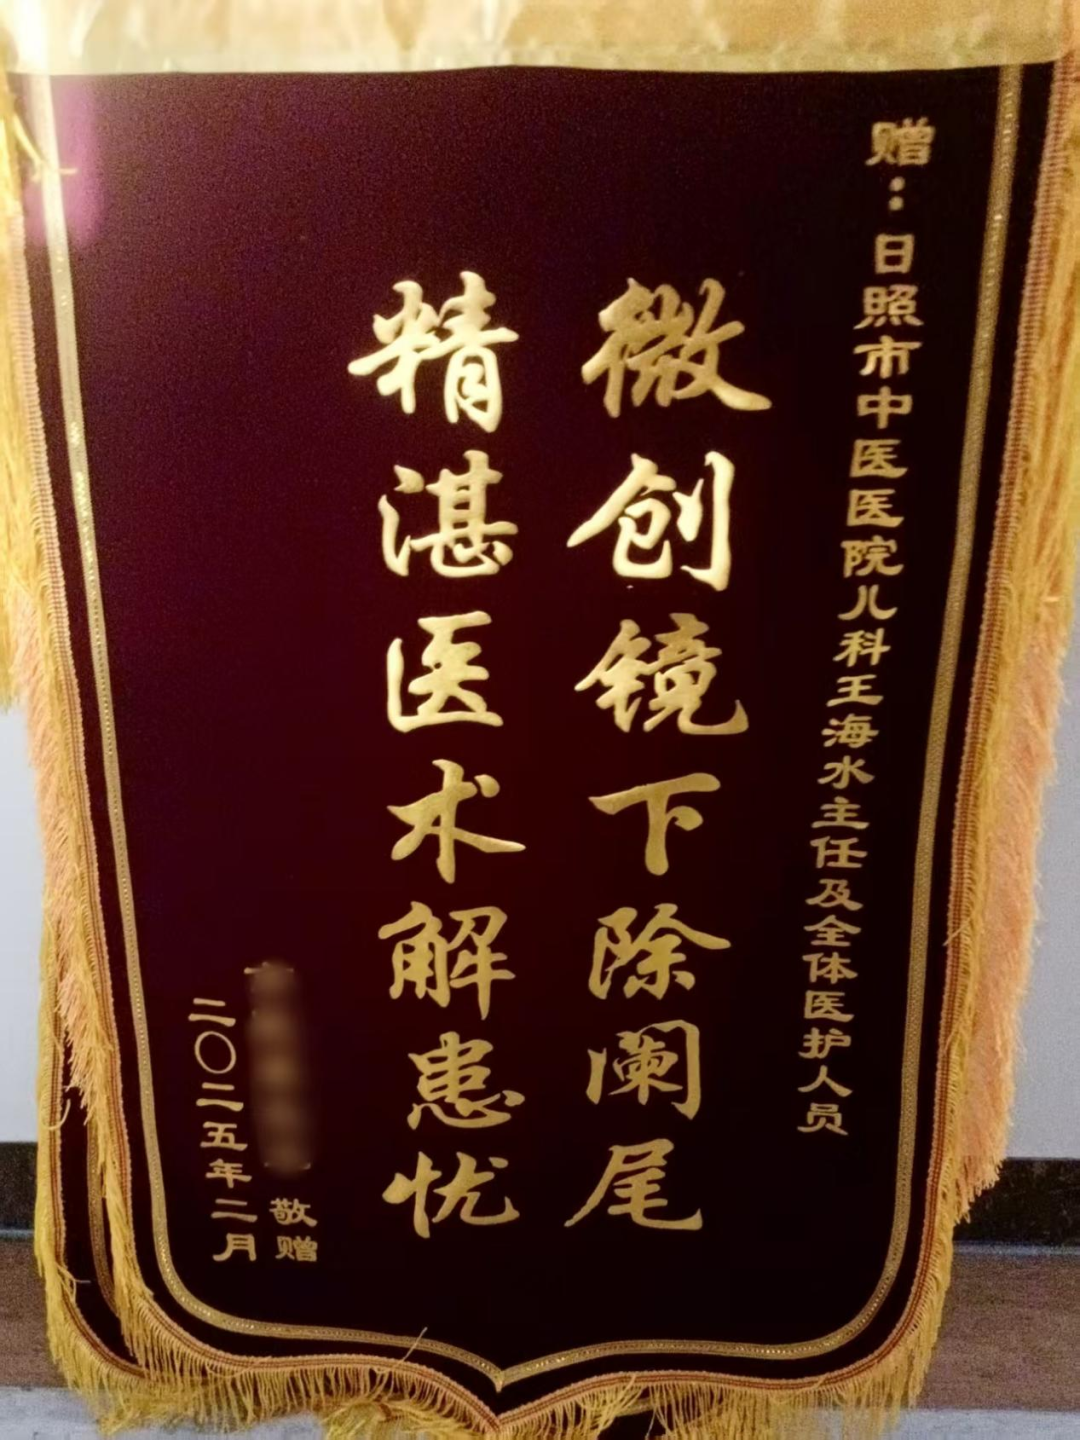 赠：日照市中医医院儿科王海水主任及全体医护人员
微创镜下除阑尾
精湛医术解患忧
敬赠
二〇二五年二月